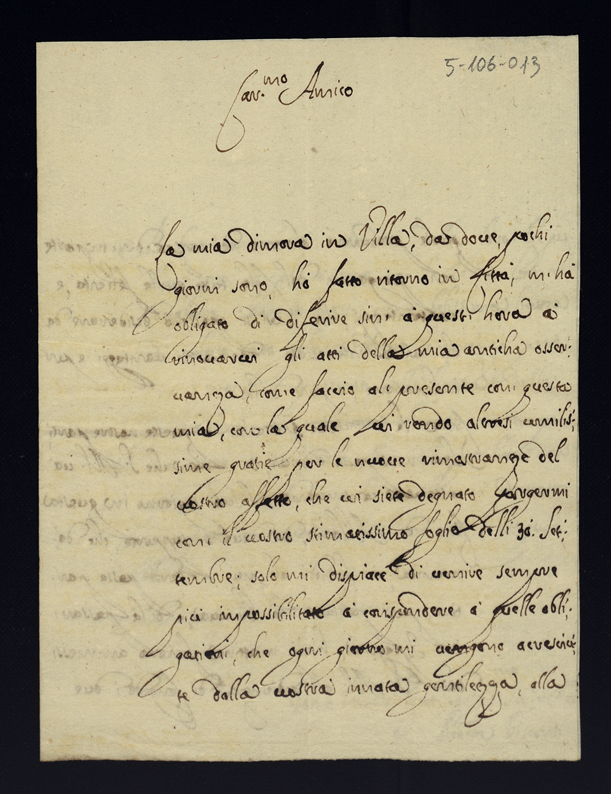 5-106-013
Car.mo Amico
La mia dimora in Villa, da doue, pochi
giorni sono, hò fatto ritorno in Città, m'hà
obligato di diferire sin' à quest' hora à
rinouarui gli atti della mia anticha osser:
uanza, come faccio al presente con questa
mia, con la quale ui rendo altresi umilis:
sime gratie per le nuoue rimostranze del
uostro affetto, che ui siete degnato porgermi
con il uostro stimatissimo foglio delli 30. Set:
tembre; solo mi dispiace di uenire sempre
più impossibilitato à corispondere à quelle obli:
gationi, che ogni giorno mi uengono accresciu:
te dalla uostra innata gentilezza, alla